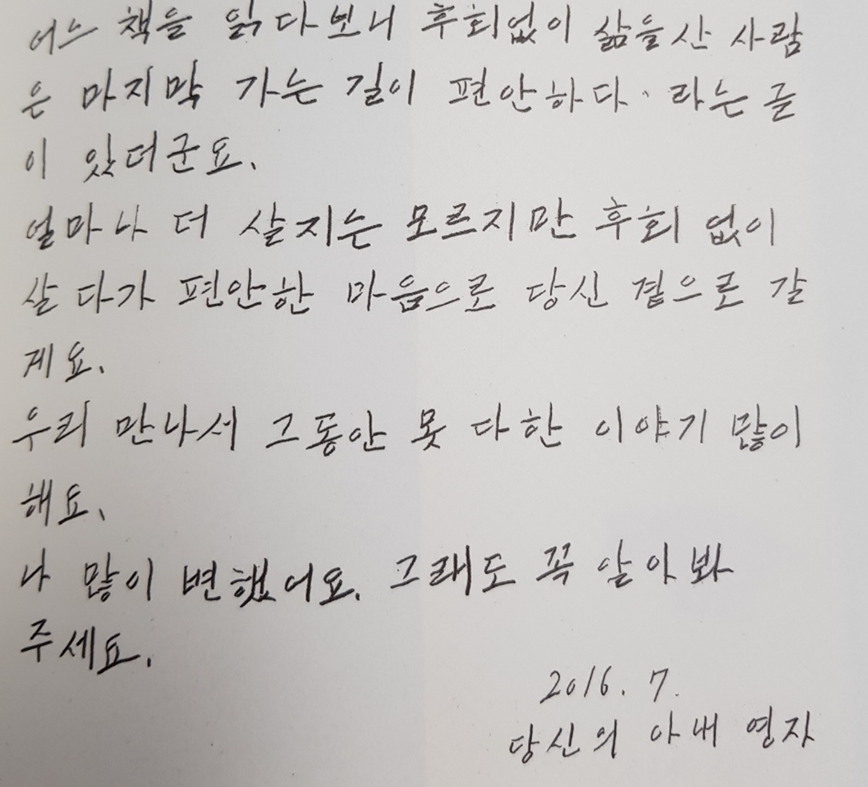 어느 책을 읽다보니 후회없이 삶을 산 사람
은 마지막 가는 길이 편안하다. 라는 글
이 있더군요.
얼마나 더 살지는 모르지만 후회 없이
살다가 편안한 마음으로 당신 곁으로 갈
게요.
우리 만나서 그동안 못 다한 이야기 많이
해요.
나 많이 변했어요. 그래도 꼭 알아봐
주세요.
2016. 7.
당신의 아내 영자